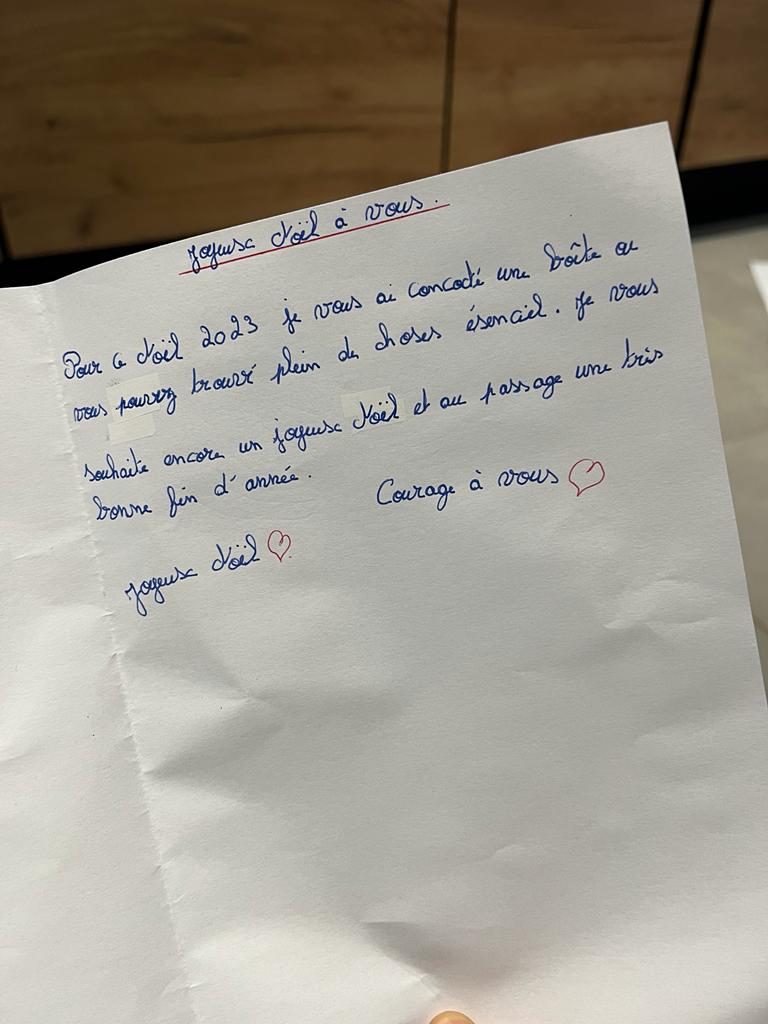 Joyeuse Noël à vous.
Pour ce Noël 2023 je vous ai concocté une boîte ou
vous pourrez trouvé plein de choses ésenciel. Je vous
souhaite encore un joyeuse Noël et au passage une très
bonne fin d'année.
Courage à vous
Joyeuse Noël